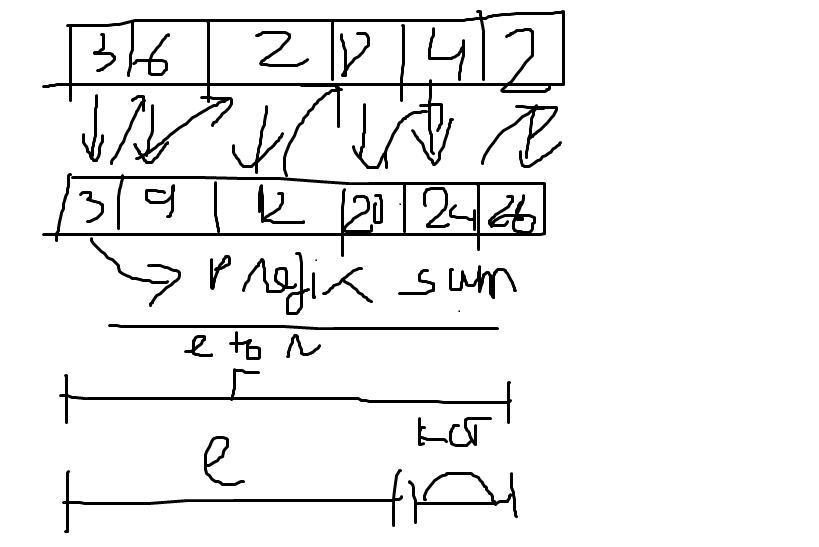 3 6 2 8 4 2
3 9 12 20 24 26
Prefix sum
e to r
r
e